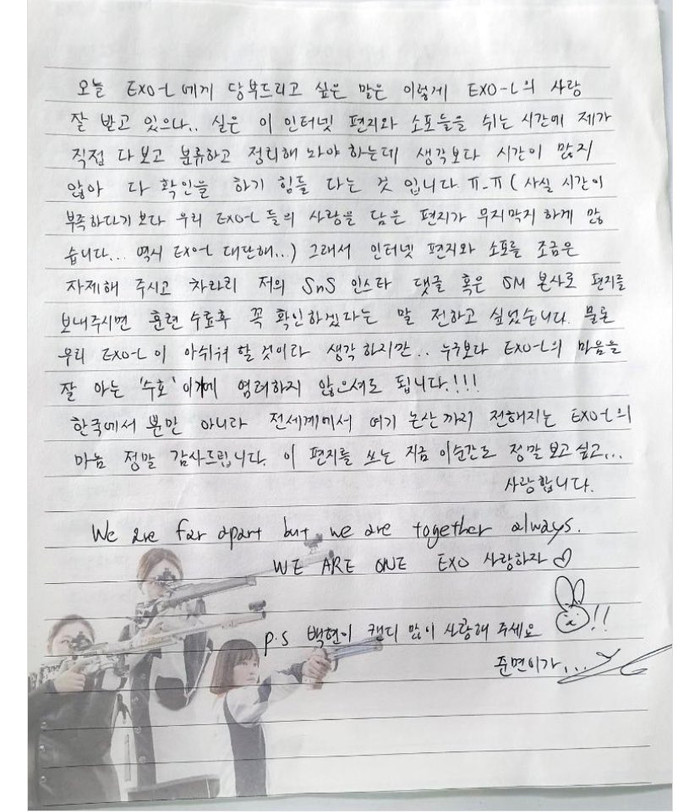 오늘 EXO-L에게 당부드리고 싶은 말은 이렇게 EXO-L의 사랑
잘 받고 있으나.. 실은 이 인터넷 편지와 소포들을 쉬는 시간에 제가
직접 다 보고 분류하고 정리해 놔야 하는데 생각보다 시간이 많지
않아 다 확인을 하기 힘들 다는 것 입니다 ㅠ-ㅠ (사실 시간이
부족하다기 보다 우리 EXO-L 들의 사랑을 담은 편지가 무지막지 하게 많
습니다... 역시 EXO-L 대단해...) 그래서 인터넷 편지와 소포를 조금은
자제해 주시고 차라리 저의 SnS 인스타 댓글 혹은 SM 본사로 편지를
보내주시면 훈련 수료후 꼭 확인하겠다는 말 전하고 싶었습니다. 물론
우리 EXO-L이 아쉬워 할 것이라 생각 하지만.. 누구보다 EXO-L의 마음을
잘 아는 '수호' 이기에 염려하지 않으셔도 됩니다.!!!
한국에서 뿐만 아니라 전세계에서 여기 논산 까지 전해지는 EXO-L의
마음 정말 감사드립니다. 이 편지를 쓰는 지금 이순간도 정말 보고 싶고...
사랑합니다.
We are far apart but we are together always.
WE ARE ONE EXO 사랑하자 ♡
P.S 백현이 캔디 많이 사랑해 주세요 !!
준면이가...